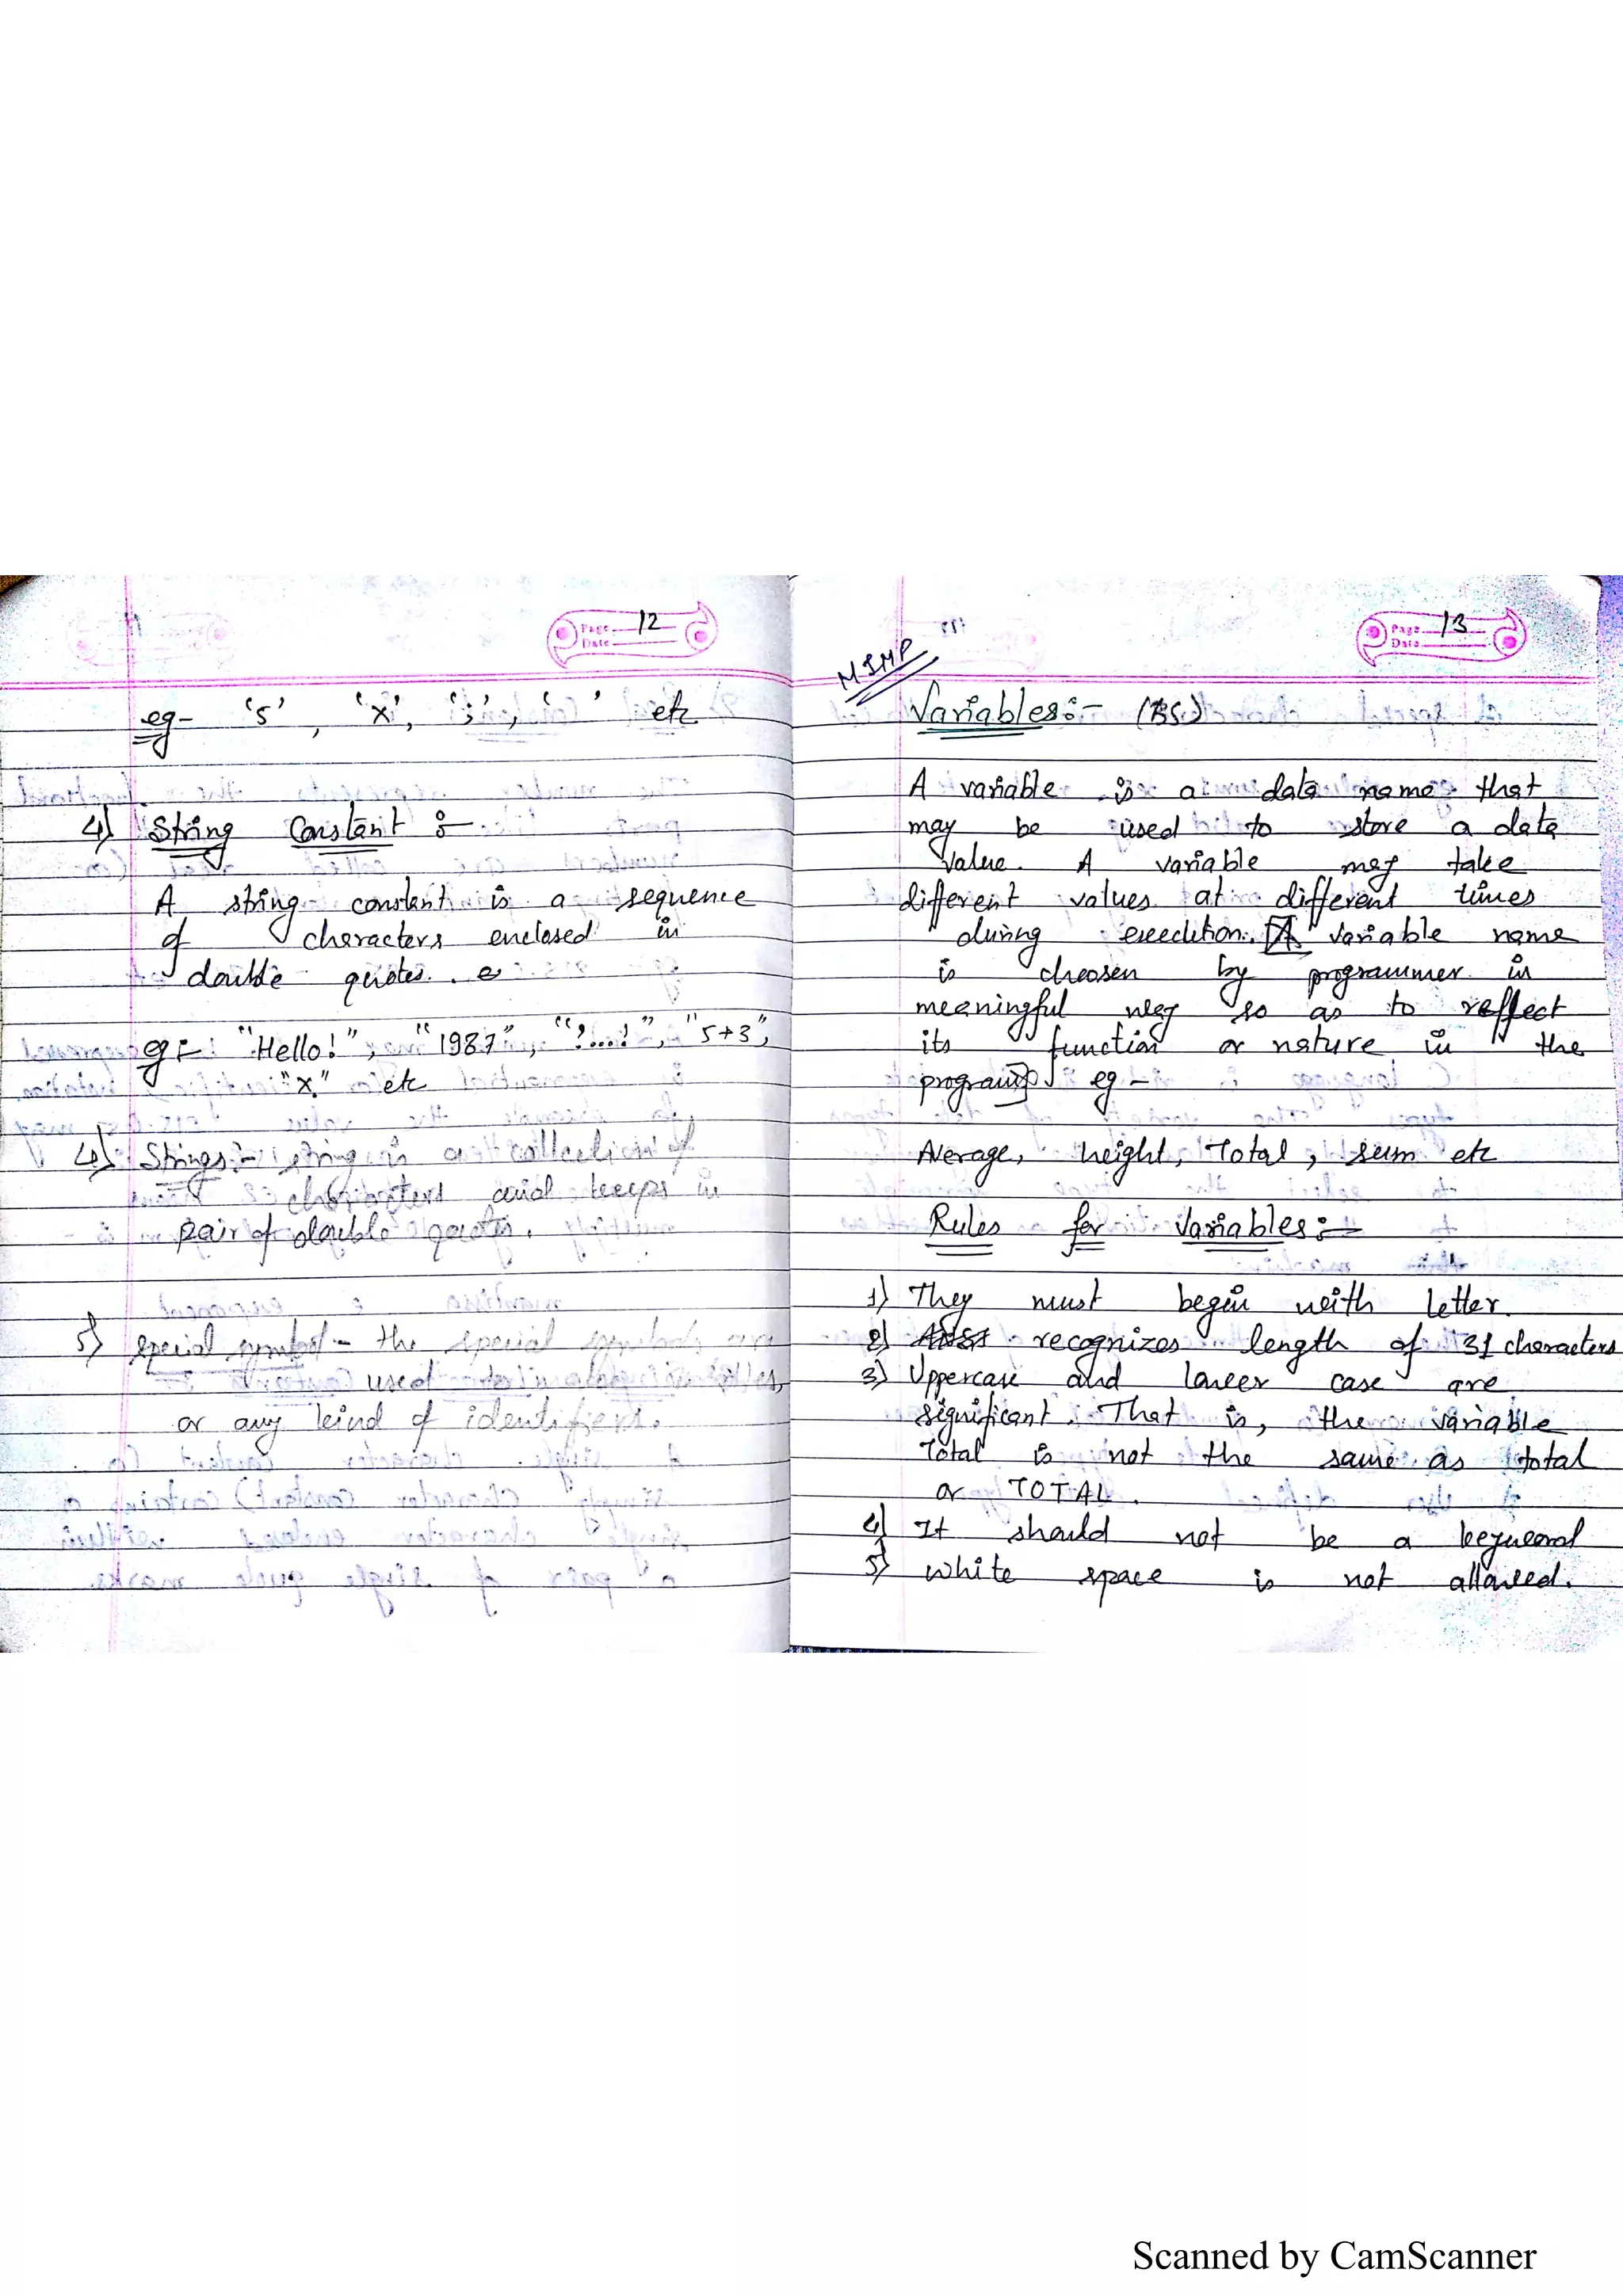 Page 12
Date
eg- '5', 'X', ';', ' ' etc
4) String Constant :-
A string constant is a sequence
of characters enclosed in
double quotes.
eg:- "Hello!", "1987", "?....!", "5+3",
"X" etc
4) Strings:- string is a collection of
characters and keeps in
pair of double quotes.
5) special symbol - the special symbols are
used
or any kind of identifiers.
Page 13
Date
M IMP
Variables:-
A variable is a data name that
may be used to store a data
value. A variable may take
different values at different times
during execution. A variable name
is choosen by programmer in
meaningful way so as to refflect
its function or nature in the
program. eg-
Average, height, Total, sum etc
Rules for Variables:-
1) They must begin with letter.
2) ANSI recognizes length of 31 characters
3) Uppercase and lower case are
significant. That is, the variable
Total is not the same as total
or TOTAL.
4) It should not be a keyword
5) White space is not allowed.
Scanned by CamScanner